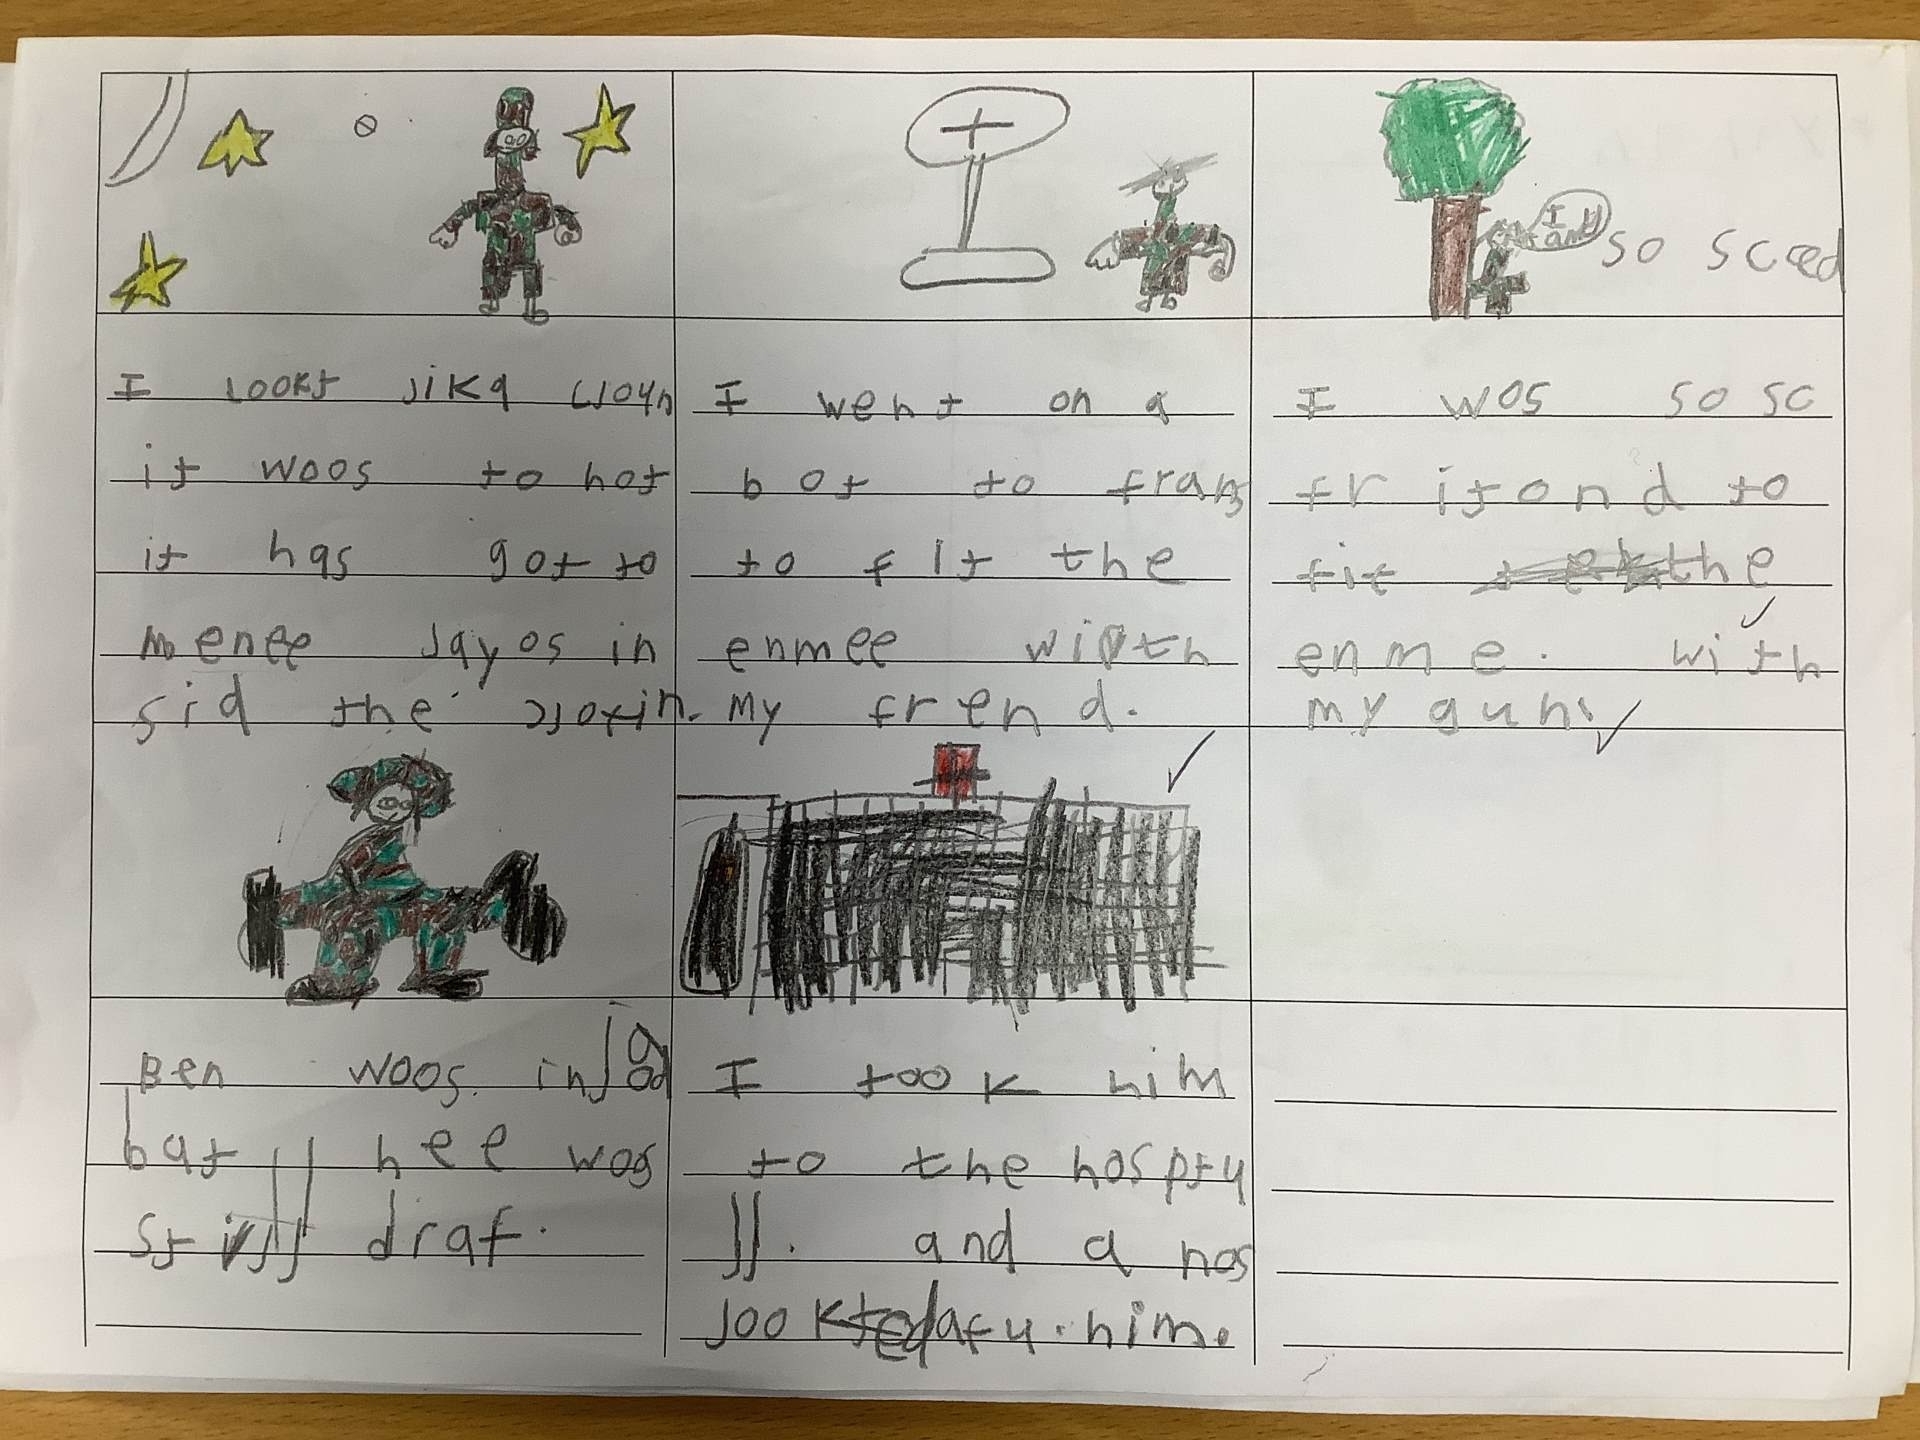 I am
so scæd
I lookt lika clown
it woos to hot
it has got to
menee layos in
sid the clotin.
I went on a
bot to frans
to fit the
enmee with
my frend.
I wos so sc
fritond to
fit the
enme. with
my gun.
Ben woos. injad
bat hee wos
still draf.
I took him
to the hosptu
ll. and a nos
looked afu. him.